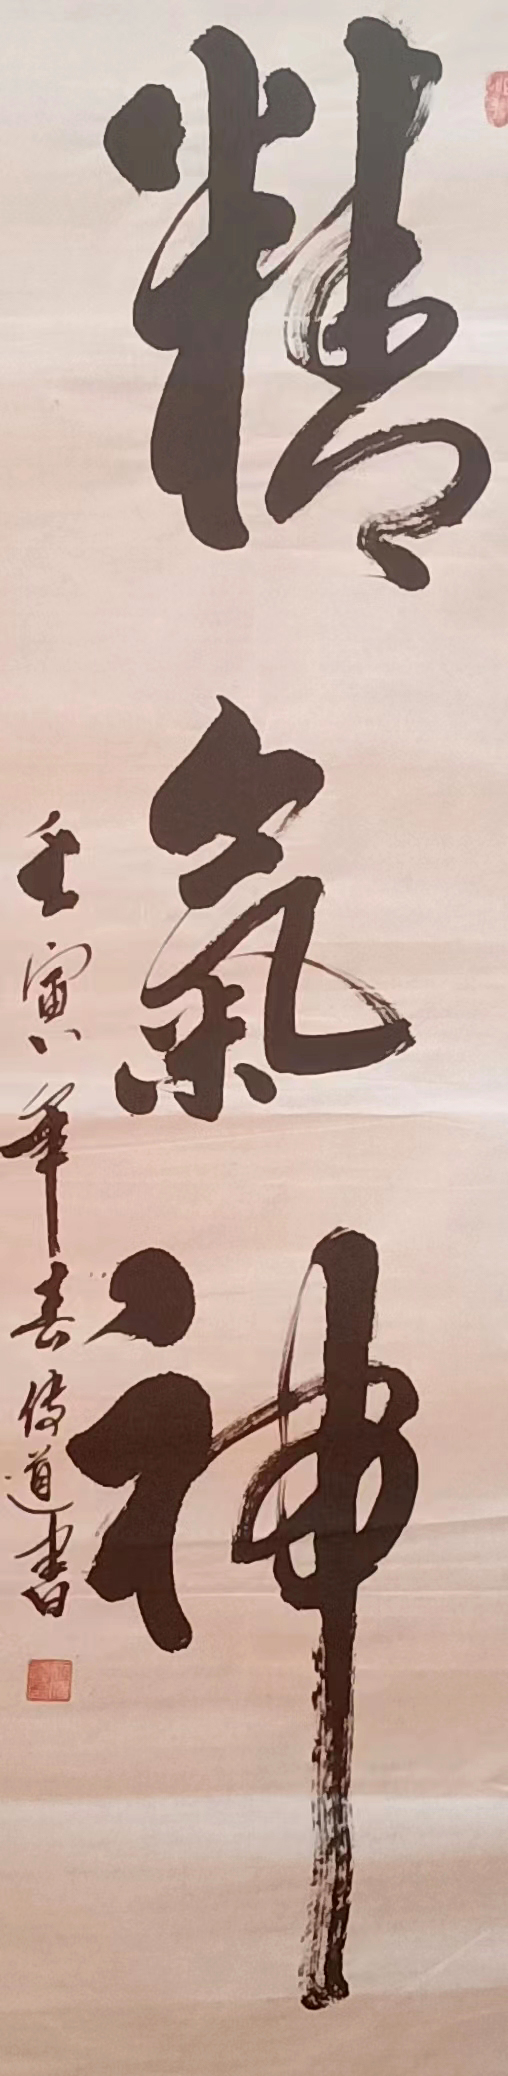 精氣神
壬寅年春傳道書